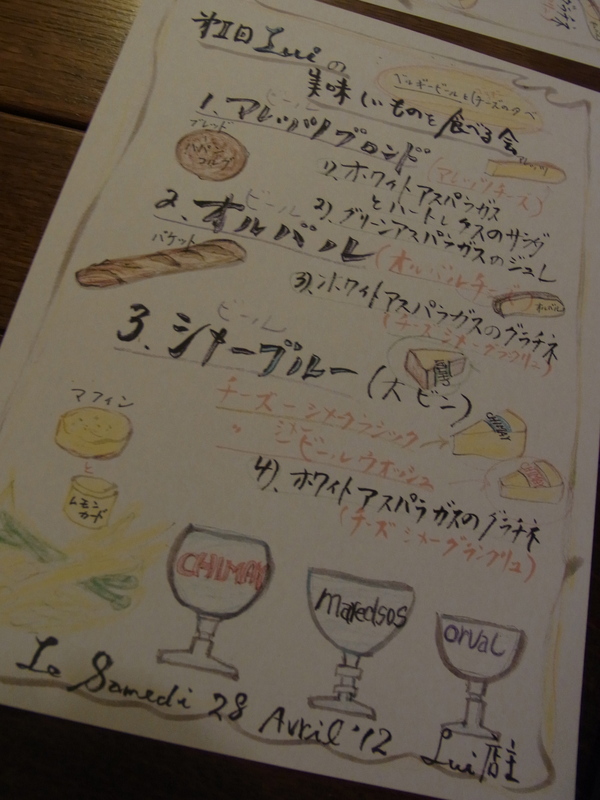 Luiの
ベルギービールとチーズの夕べ
美味しいものを食べる会
1. マレッツブロンド
ビール
ブレッド
1)、ホワイトアスパラガス
とハートレタスのサラダ
(マレッツチーズ)
2)、グリーンアスパラガスのジュレ
2、オルバル
ビール
(オルバルチーズ)
バケット
3)、ホワイトアスパラガスのグラチネ
(チーズ・シメーグランクリュ)
3、シメーブルー (大ビン)
ビール
チーズ - シメクラシック
〃 シメービールウオッシュ
CHIMAY
マフィン
と
レモン
カード
4)、ホワイトアスパラガスのグラチネ
(チーズ シメーグランクリュ)
CHIMAY
Maredsos
orval
Le Samedi 28 Avril '12 Lui店主